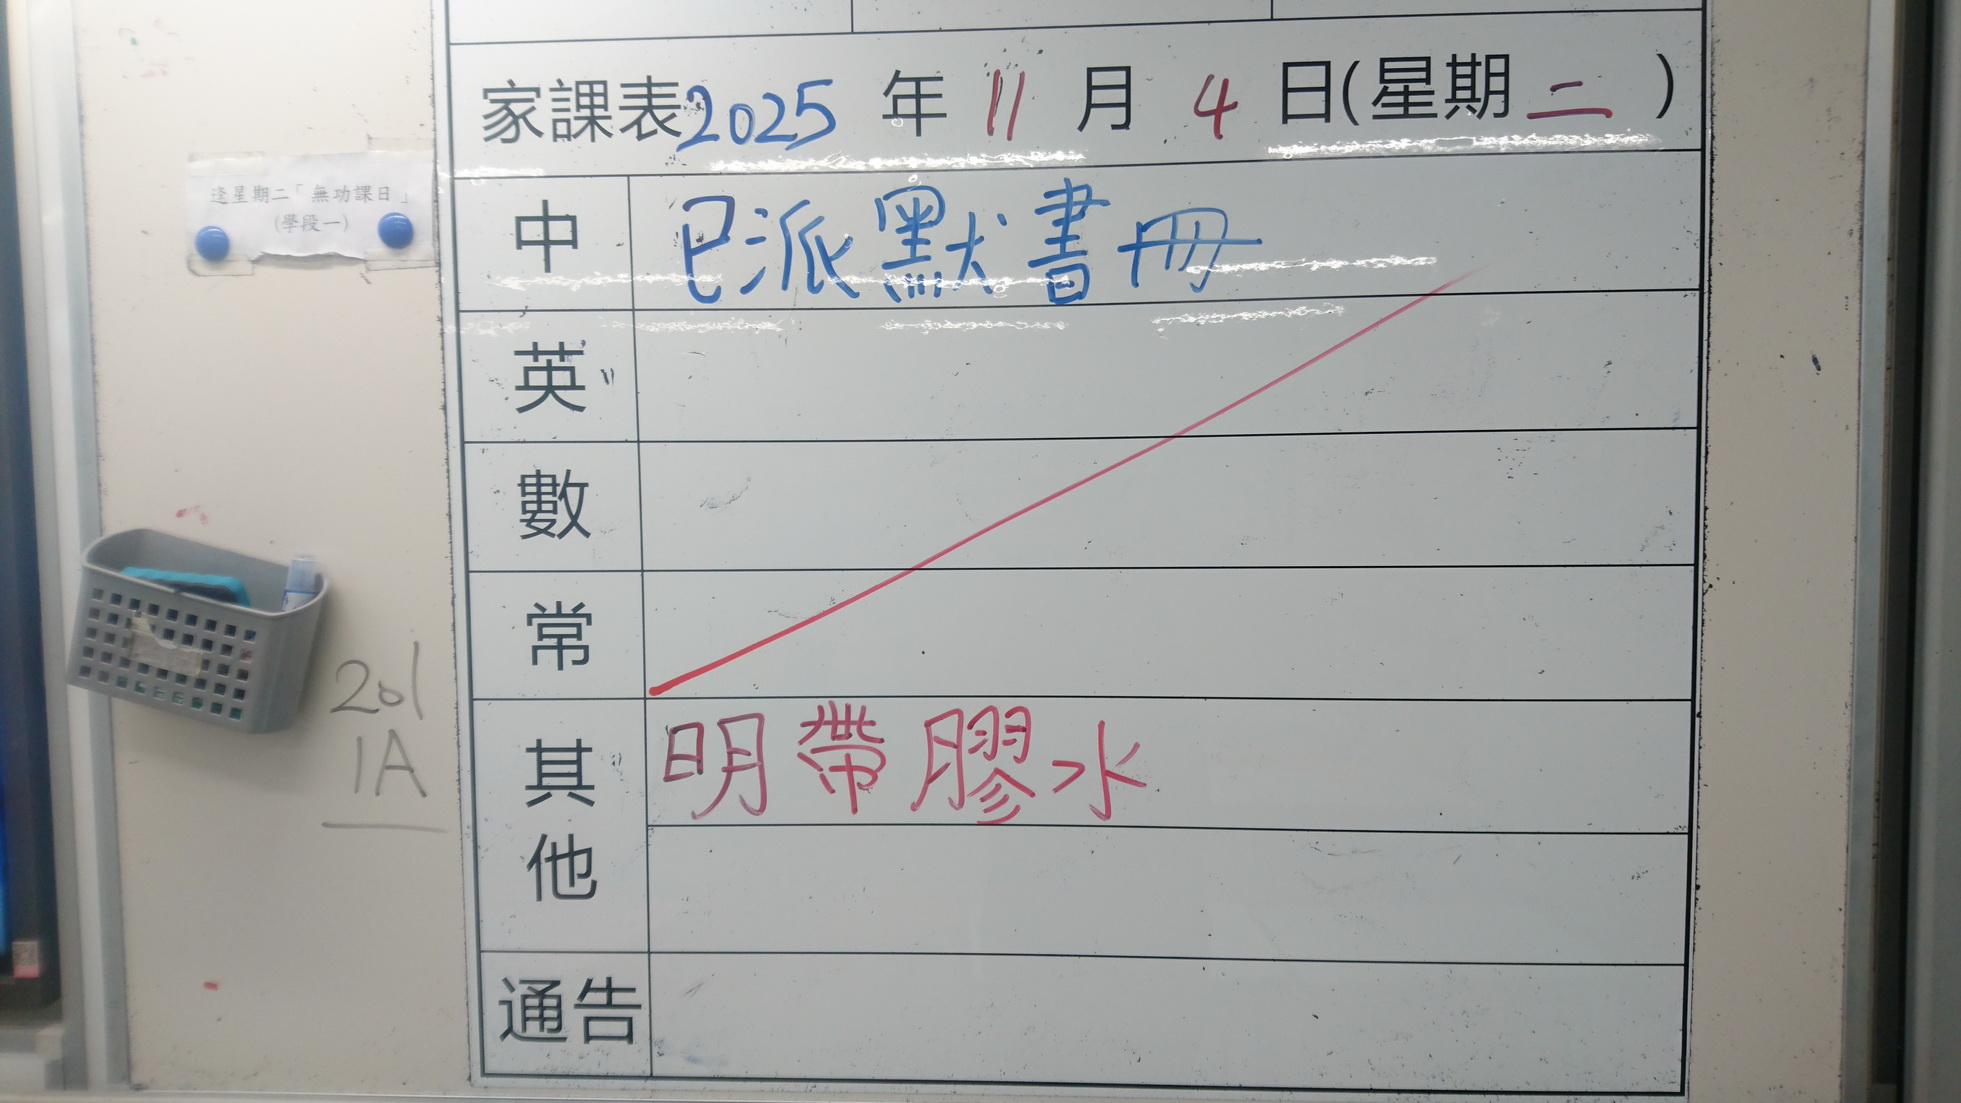 家課表2025年11月4日(星期二)
逢星期二「無功課日」
(學段一)
中 已派默書冊
英
數
常
其他 明帶膠水
通告
201
1A